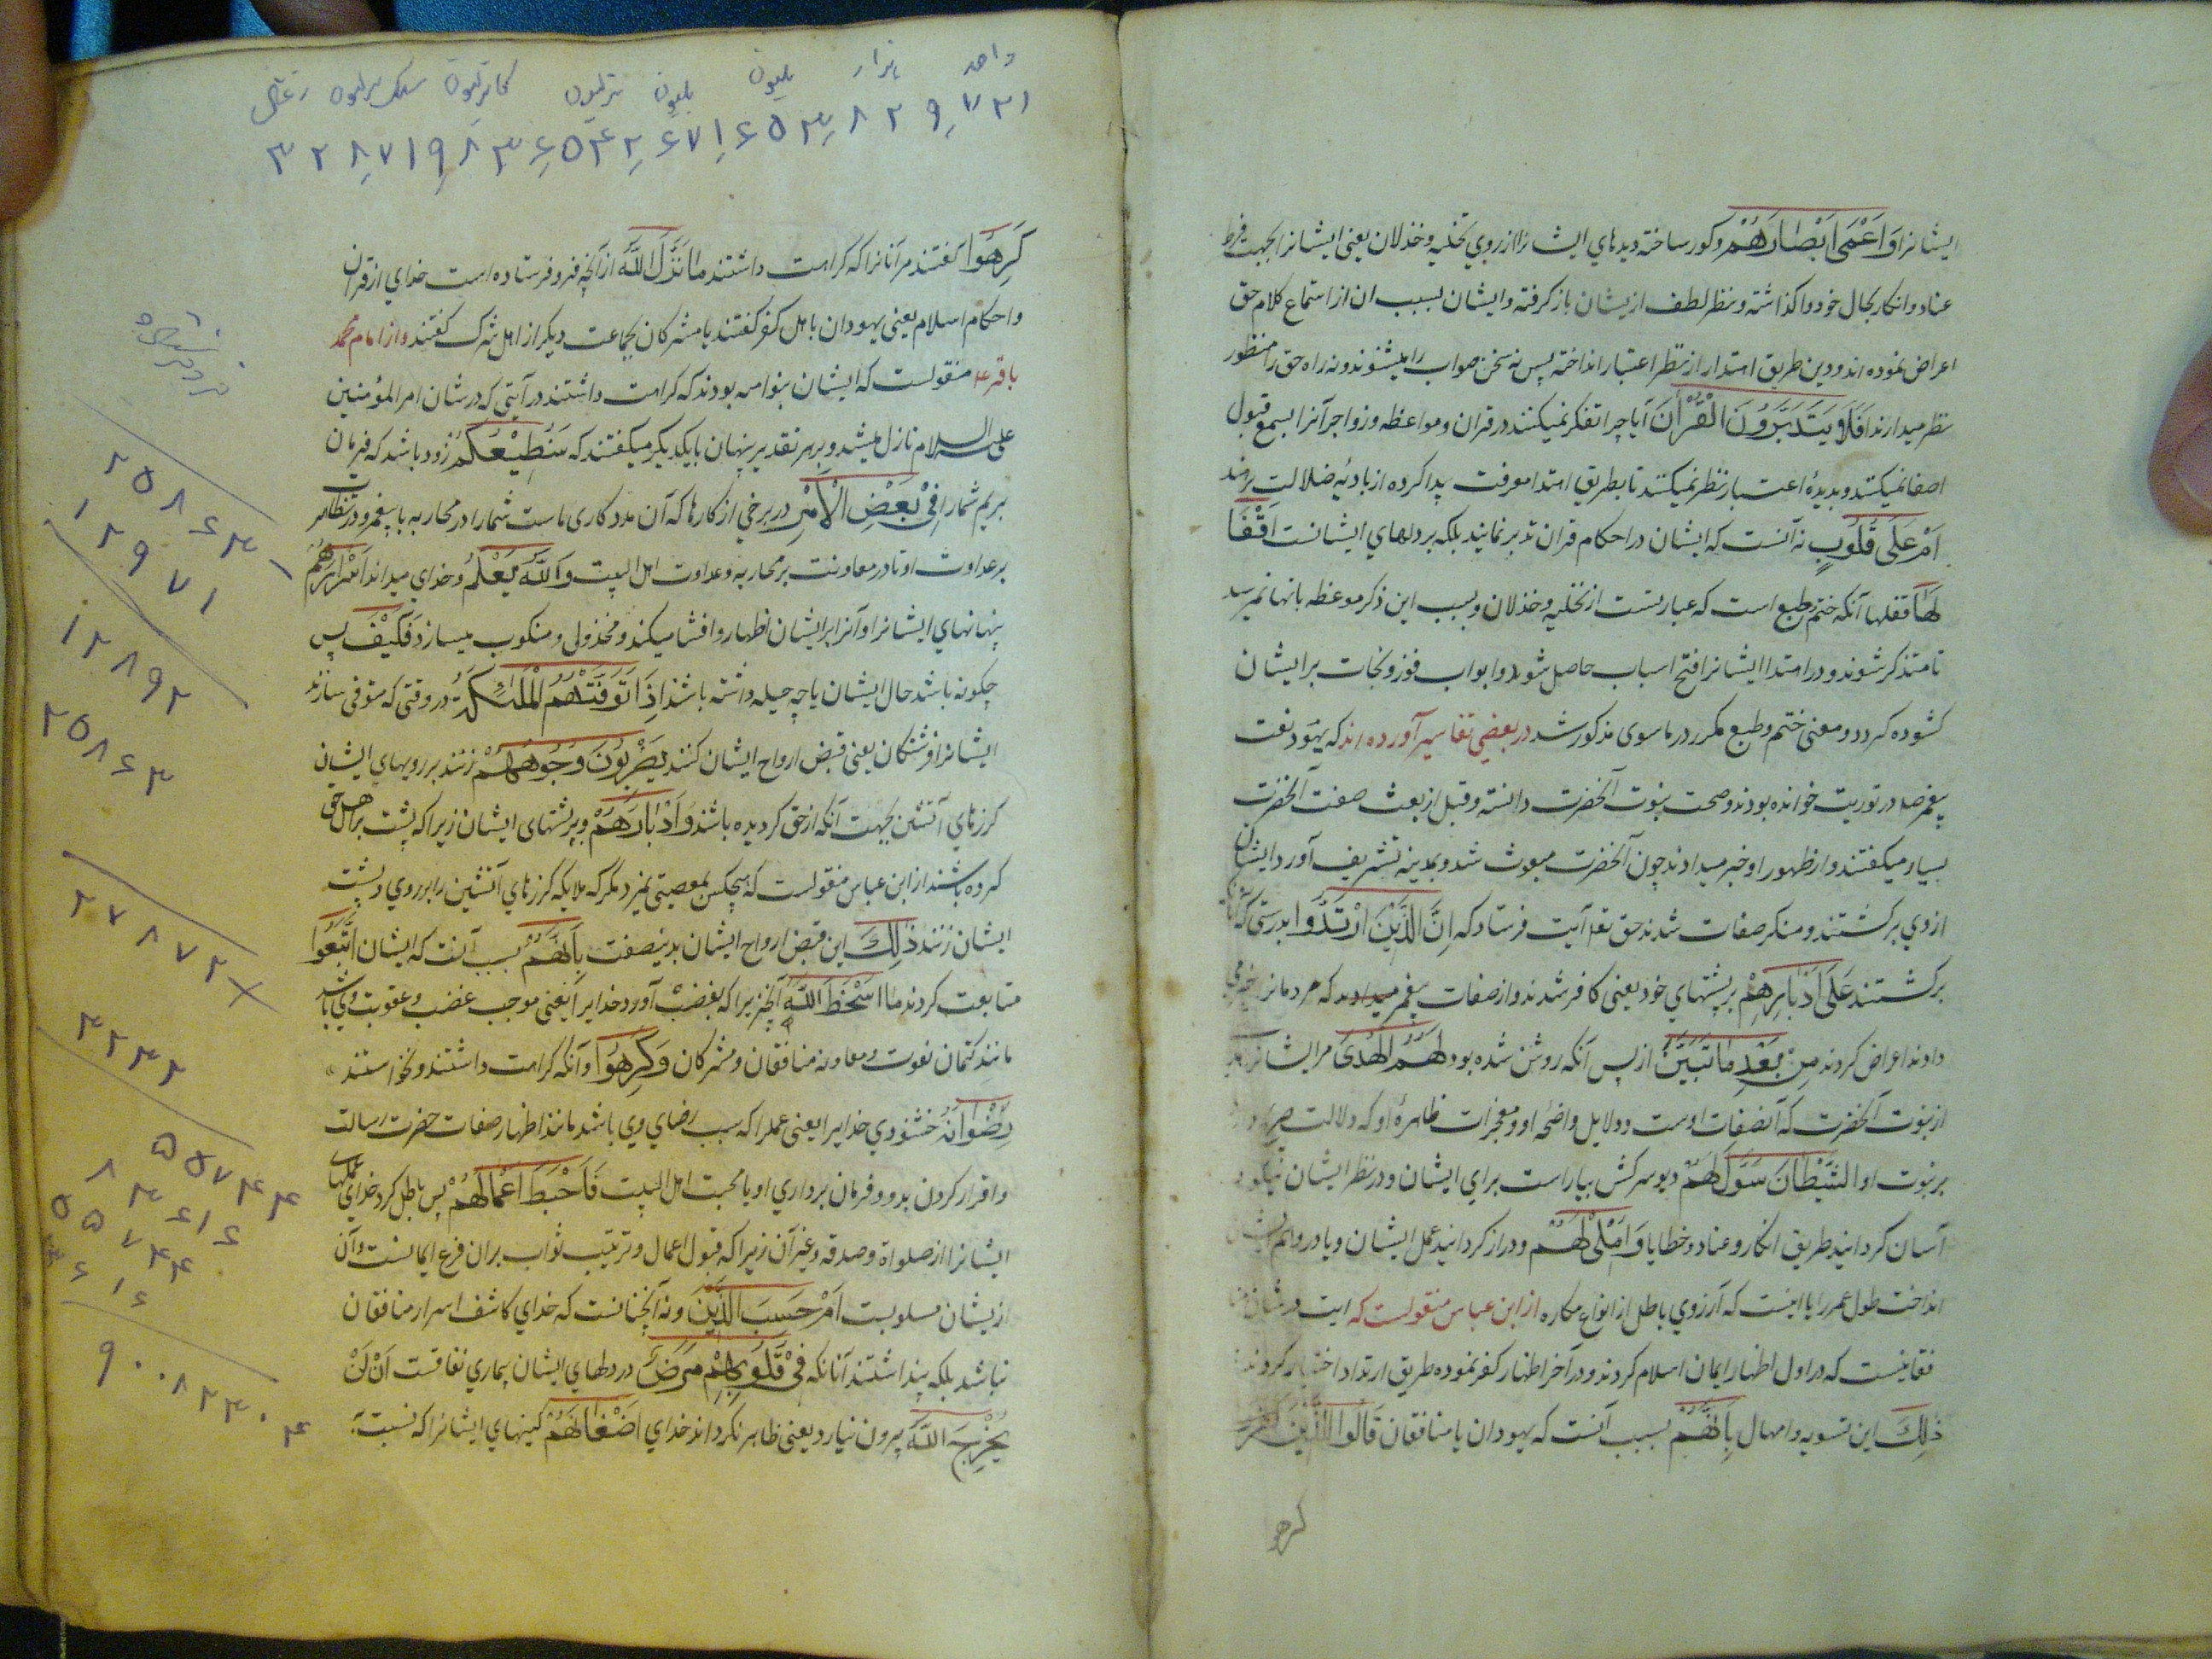 ایشانرا وَاَعْمَی اَبْصَارَهُمْ و کور ساخته دیدهای ایشانرا از روی تخلیه و خذلان یعنی ایشانرا بجهت فرط
عناد و انکار بحال خود واکذاشته و نظر لطف ازیشان باز کرفته و ایشان بسبب ان از استماع کلام حق
اعراض نموده اند و دین طریق اهتدار از نظر اعتبار انداخته پس نه سخن صواب را میشنوند و نه راه حق را منظور
نظر میدارند اَفَلَا یَتَدَبَّرُونَ الْقُرْاٰنَ آیا چرا تفکر نمیکنند در قران و مواعظه و زواجر آنرا بسمع قبول
اصفا نمیکنند و بدیدهٔ اعتبار نظر نمیکنند تا بطریق اهتدا معرفت پیدا کرده از بادیهٔ ضلالت برهند
اَمْ عَلَی قُلُوبٍ نه آنست که ایشان در احکام قران تدبر نمایند بلکه بر دلهای ایشانست اَقْفَا
لُهَا قفلها آنکه ختم و طبع است که عبارتست از تخلیه و خذلان و بسبب این ذکر موعظه بانها نمیرسد
تا متذکر شوند و در اهتدا ایشانرا فتح اسباب حاصل شود و ابواب فوز و نجات بر ایشان
کشوده کردد و معنی ختم و طبع مکرر در ماسوی مذکور شد در بعضی تفاسیر آورده اند که یهود نعت
پیغمبر صلعم در توریت خوانده بودند و صحت نبوت آنحضرت دانسته و قبل از بعث صفت آنحضرت
بسیار میکفتند و از ظهور او خبر میدادند چون آنحضرت مبعوث شد و بمدینه تشریف آورد ایشان
ازوی برکشتند و منکر صفات شدند حق تعه آیت فرستاد که اِنَّ الَّذِینَ ارْتَدُّوا بدرستی که آنانکه
برکشتند عَلَی اَدْبَارِهِمْ بر پشتهای خود یعنی کافر شدند و از صفات پیغمبر میدادند که مردمانرا خبر می
دادند اعراض کردند مِنْ بَعْدِ مَا تَبَیَّنَ از پس آنکه روشن شده بود لَهُمُ الْهُدَی مر ایشانرا
از نبوت آنحضرت که آنصفات اوست و دلایل واضحه او و معجزات ظاهرهٔ او که دلالت صریح دارد
بر نبوت او الشَّیْطَانُ سَوَّلَ لَهُمْ دیو سرکش بیاراست برای ایشان و در نظر ایشان نیکو و
آسان کردانید طریق انکار و عناد و خطایا وَاَمْلَی لَهُمْ و دراز کردانید عمل ایشان و یا در وهم ایشان
انداخت طول عمر را یا اینست که آرزوی باطل از انواع مکاره از ابن عباس منقولست که ایت در شان
نفاقیست که در اول اظهار ایمان اسلام کردند و در آخر اظهار کفر نموده طریق ارتداد اختیار کردند
ذٰلِکَ این تسویه و امهال بِاَنَّهُمْ بسبب آنست که یهودان یا منافقان قَالُوا لِلَّذِینَ
کرهو
واحد هزار ملیون بلیون تریلیون
۳۲۸,۷۱۹,۸۳۶,۵۴۲,۶۷۱,۶۵۳,۸۲۹,۷۲۱
کَرِهُوا کفتند مر آنانرا که کراهت داشتند مَا نَزَّلَ اللّٰهُ از آنچه فرو فرستاده است خدای از قران
و احکام اسلام یعنی یهودان باهل کفر کفتند یا مشرکان بجماعت دیکر از اهل شرک کفتند و از امام محمد
باقر ع منقولست که ایشان بنو امیه بودند که کراهت داشتند در آیتی که در شان امیر المؤمنین
علی السلام نازل میشد و بر هر تقدیر پنهان بایکدیکر میکفتند که سَنُطِیعُکُمْ زود باشد که فرمان
بریم شما را فِی بَعْضِ الْاَمْرِ در برخی از کارها که آن مددکاری ماست شما را در محاربه با پیغمبر و در تظاهر
بر عداوت او تا در معاونت بر محاربه و عداوت اهل البیت وَاللّٰهُ یَعْلَمُ و خدای میداند اِسْرَارَهُمْ
پنهانهای ایشانرا و آنرا بر ایشان اظهار و افشا میکند و مخذول و منکوب میسازد فَکَیْفَ پس
چکونه باشد حال ایشان یا چه حیله داشته باشند اِذَا تَوَفَّتْهُمُ الْمَلٰئِکَةُ در وقتی که متوفی سازند
ایشانرا فرشتکان یعنی قبض ارواح ایشان کنند یَضْرِبُونَ وُجُوهَهُمْ زنند بر رویهای ایشان
کرزهای آتشین بجهت آنکه از حق کردیده باشند وَاَدْبَارَهُمْ و بر پشتهای ایشان زیرا که پشت بر اهل حق
کرده باشند از ابن عباس منقولست که هیچکس بمعصیتی نمیرد مکر که ملایکه کرزهای آتشین را بر روی و پشت
ایشان زنند ذٰلِکَ این قبض ارواح ایشان بدینصفت بِاَنَّهُمُ بسبب آنست که ایشان اتَّبَعُوا
متابعت کردند مَا اَسْخَطَ اللّٰهَ آنچیزیرا که بغضب آورد خدایرا یعنی موجب غضب و عقوبت وی باشد
مانند کتمان نعوت و معاونه منافقان و مشرکان وَکَرِهُوا و آنکه کراهت داشتند و نخواستند
رِضْوَانَهُ خشنودی خدایرا یعنی عملیرا که سبب رضای وی باشد مانند اظهار صفات حضرت رسالت
و اقرار کردن بدو و فرمان برداری او یا محبت اهل البیت فَاَحْبَطَ اَعْمَالَهُمْ پس باطل کرد خدای عملهای
ایشانرا از صلواة و صدقه و غیر آن زیرا که قبول اعمال و ترتیب ثواب بران فرع ایمانست و آن
ازیشان مسلوبست اَمْ حَسِبَ الَّذِینَ و نه آنچنانست که خدای کاشف اسرار منافقان
نباشد بلکه پنداشتند آنانکه فِی قُلُوبِهِمْ مَرَضٌ در دلهای ایشان بیماری نفاقست اَنْ لَنْ
یُخْرِجَ اللّٰهُ بیرون نیارد یعنی ظاهر نکرداند خدای اَضْغَانَهُمْ کینهای ایشانرا که نسبت به
۲۵۸۶۳
۱۲۹۷۱
۱۲۸۹۲
۲۵۸۶۳
۲۷۸۷۲
۳۲۳۲
۵۵۷۴۴
۸۳۶۱۶
۵۵۷۴۴
۸۳۶۱۶
۹۰۰۸۲۳۰۴